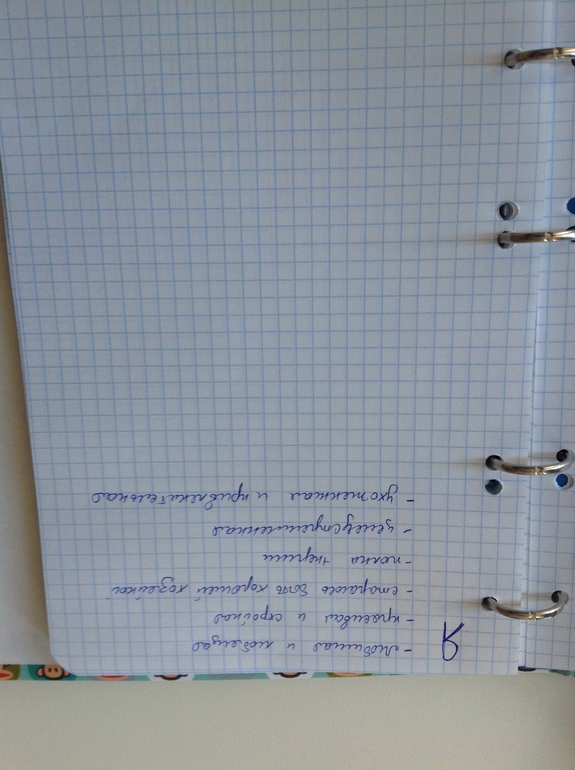 Я
- любимая и любящая
- красивая и стройная
- стараюсь быть хорошей хозяйкой
- полна энергии
- целеустремленная
- ухоженная и привлекательная